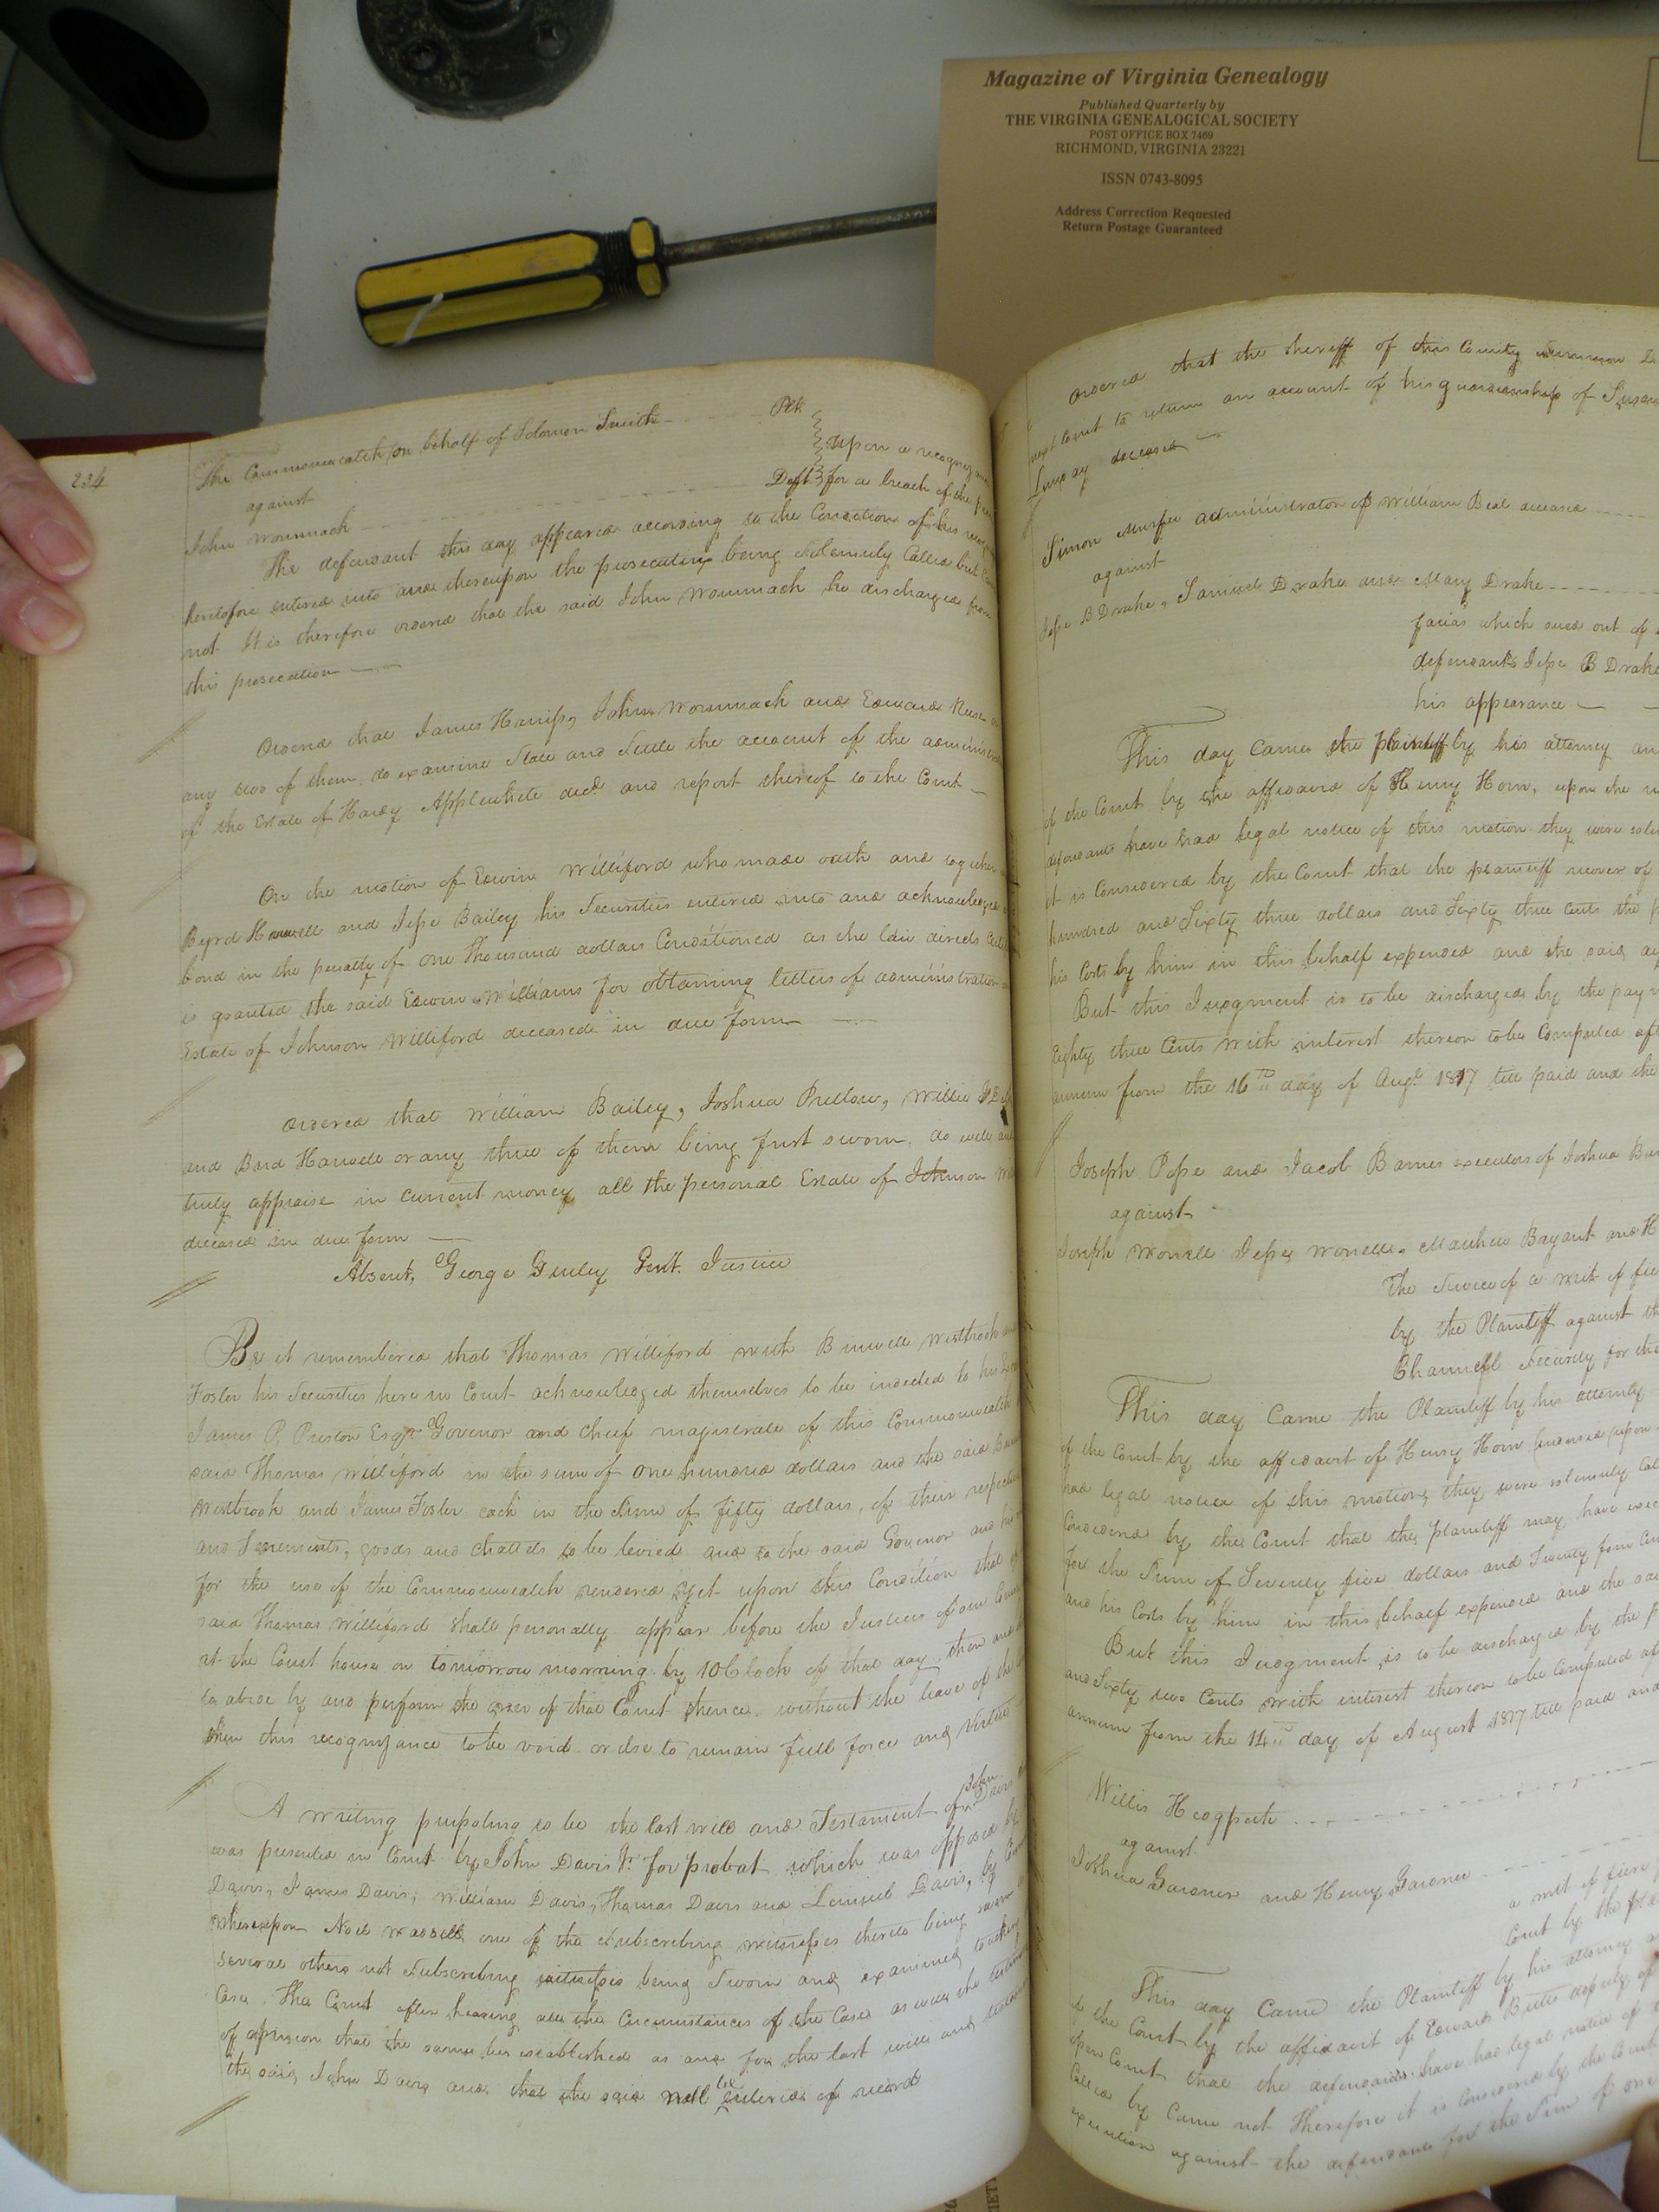 Magazine of Virginia Genealogy
Published Quarterly by
THE VIRGINIA GENEALOGICAL SOCIETY
POST OFFICE BOX 7469
RICHMOND, VIRGINIA 23221
ISSN 0743-8095
Address Correction Requested
Return Postage Guaranteed
234
The Commonwealth on behalf of Solomon Smith Plt
against Upon a
John Wommack Deft for a breach of the
The defendant this day appeared according to the Condition of his
heretofore entered into and thereupon the prosecution being Solemnly Called but
not It is therefore ordered that the said John Wommack be discharged from
this prosecution
Ordered that James Harriss, John Wommack and Edward
any two of them do examine State and Settle the account of the
of the Estate of Hardy Applewhite decd. and report thereof to the Court
On the motion of Edwin Williford who made oath and together
Byrd and Jesse Bailey his Securities entered into and acknowledged
bond in the penalty of one thousand dollars Conditioned as the law directs
is granted the said Edwin Williams for obtaining letters of administration
Estate of Johnson Williford deceased in due form
Ordered that William Bailey, Joshua Pretlow, Willie
and Bird or any three of them being first sworn, do well and
truly appraise in current money all the personal Estate of Johnson
deceased in due form
Absent, George Gurley Gent. Justice
Be it remembered that Thomas Williford with Burwell Westbrook
Foster his Securities here in Court acknowledged themselves to be indebted to his
James P. Preston Esqr. Govenor and cheif magistrate of this Commonwealth
said Thomas Williford in the sum of one hundred dollars and the said
Westbrook and James Foster each in the Sum of fifty dollars, of their
and Tenements, goods and chattels to be levied and to the said Govenor and his
for the use of the Commonwealth rendered yet upon this Condition that
said Thomas Williford Shall personally appear before the Justices of our
at the Court house on tomorrow morning by 10 Clock of that day then and
to abide by and perform the order of that Court thence without the leave of the
then this recognizance to be void or else to remain full force and Virtue
A writing purpoting to be the last will and Testament of John Davis
was presented in Court by John Davis Jr. for probat which was opposed by
Davis, James Davis, William Davis, Thomas Davis and Lemuel Davis, by
whereupon one of the Subscribing witnesses thereto being sworn
several others not Subscribing witnesses being Sworn and examined
Case. The Court after hearing all the Circumstances of the Case as well the
of opinion that the same be established as and for the last will and
the said John Davis and that the said will be entered of record
ordered that the Sheriff of this County summon
next Court to return an account of his guardianship of
deceased
Simon Murfee administrator of William Beal deceased
against
Jesse B Drake, Samuel Drake and Mary Drake
facias which sued out of
defendants Jesse B Drake
his appearance
This day came the plaintiff by his attorney
of the Court by the affidavit of Henry Horn, upon the
defendants have had legal notice of this motion they were
it is Considered by the Court that the plaintiff recover of
hundred and Sixty three dollars and Sixty three cents the
his Costs by him in this behalf expended and the said
But this Judgment is to be discharged by the
Eighty three Cents with interest thereon to be Computed
annum from the 16th day of Augt. 1817 till paid and the
Joseph Pope and Jacob Barnes executors of Joshua
against
Joseph Worrell Jesse Worrell, Mathew Bryant and
The Service of a writ of
by the Plaintiff against
Channell Security for the
This day Came the Plaintiff by his attorney
of the Court by the affidavit of Henry Horn
had legal notice of this motion, they were solemnly
Considered by the Court that the plaintiff may have
for the Sum of Seventy five dollars and Twenty four
and his Costs by him in this behalf expended and the
But this Judgment is to be discharged by the
and Sixty two Cents with interest thereon to be Computed
annum from the 14th day of August 1817 till paid and
Willis
against
Joshua Gardner and Henry Gardner
a writ of
Court by the
This day Came the Plaintiff by his attorney
of the Court by the affidavit of Edward Butts deputy of
open Court that the defendants have had legal notice of
Called by Came not Therefore it is Considered by the Court
execution against the defendants for the Sum of one